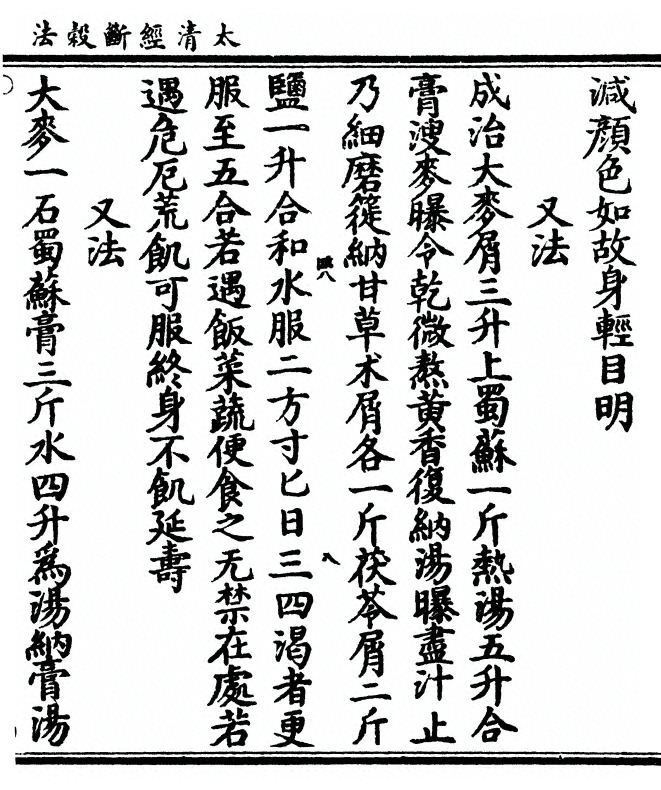 太清經斷穀法
減顏色如故身輕目明
又法
成治大麥屑三升上蜀蘇一斤熱湯五升合
膏溲麥曝令乾微熬黃香復納湯曝盡汁止
乃細磨簁納甘草术屑各一斤茯苓屑二斤
八
八
鹽一升合和水服二方寸匕日三四渴者更
服至五合若遇飯菜蔬便食之无禁在處若
遇危厄荒飢可服終身不飢延壽
又法
大麥一石蜀蘇膏三斤水四升爲湯納膏湯